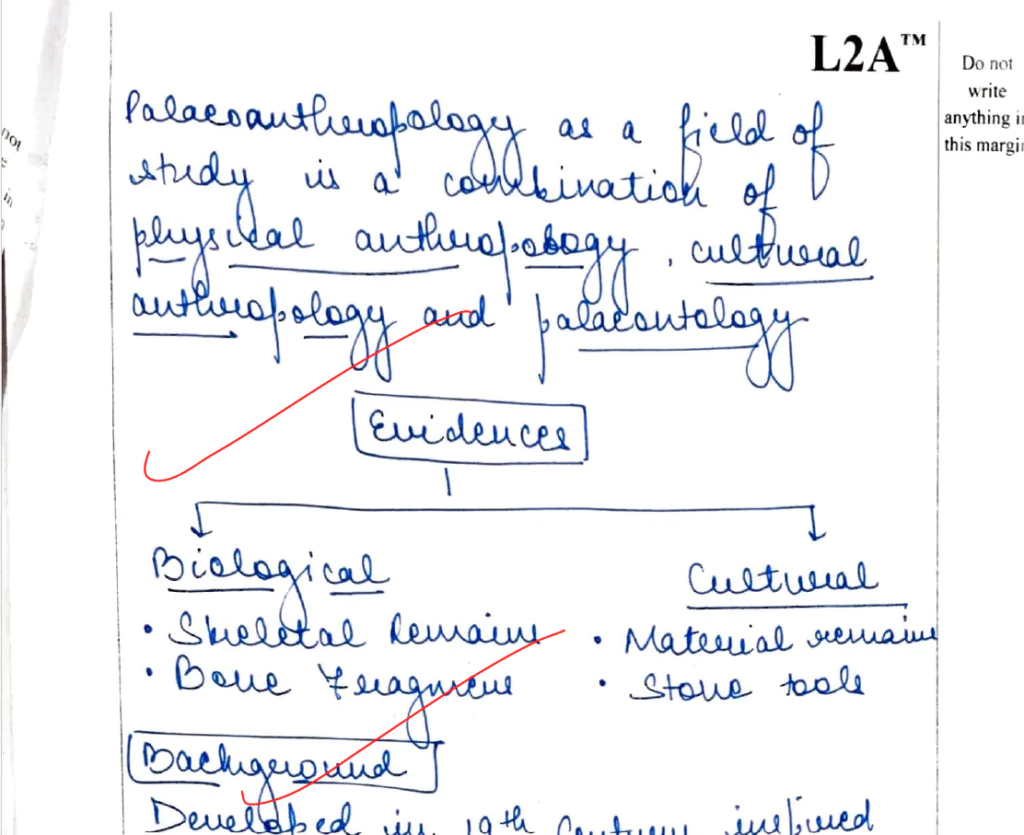 L2A™
Do not
write
anything in
this margin
not
in
Palaeoanthropology as a field of
study is a combination of
physical anthropology, cultural
anthropology and palaeontology
Evidences
Biological
Cultural
• Skeletal Remains
• Material remains
• Bone Fragment
• Stone tools
Background
Developed in 19th Century inspired